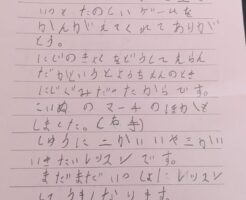 いつもたのしいゲームを
かんがえてくれてありが
とう。
にじのきょくをどうしてえらん
だかというとようちえんのとき
にじぐみだったからです。
こいぬのマーチのばんそう
しました。(右手)
しゅうに二かいいや三かい
いきたいレッスンです。
まだまだいっしょにレッスン